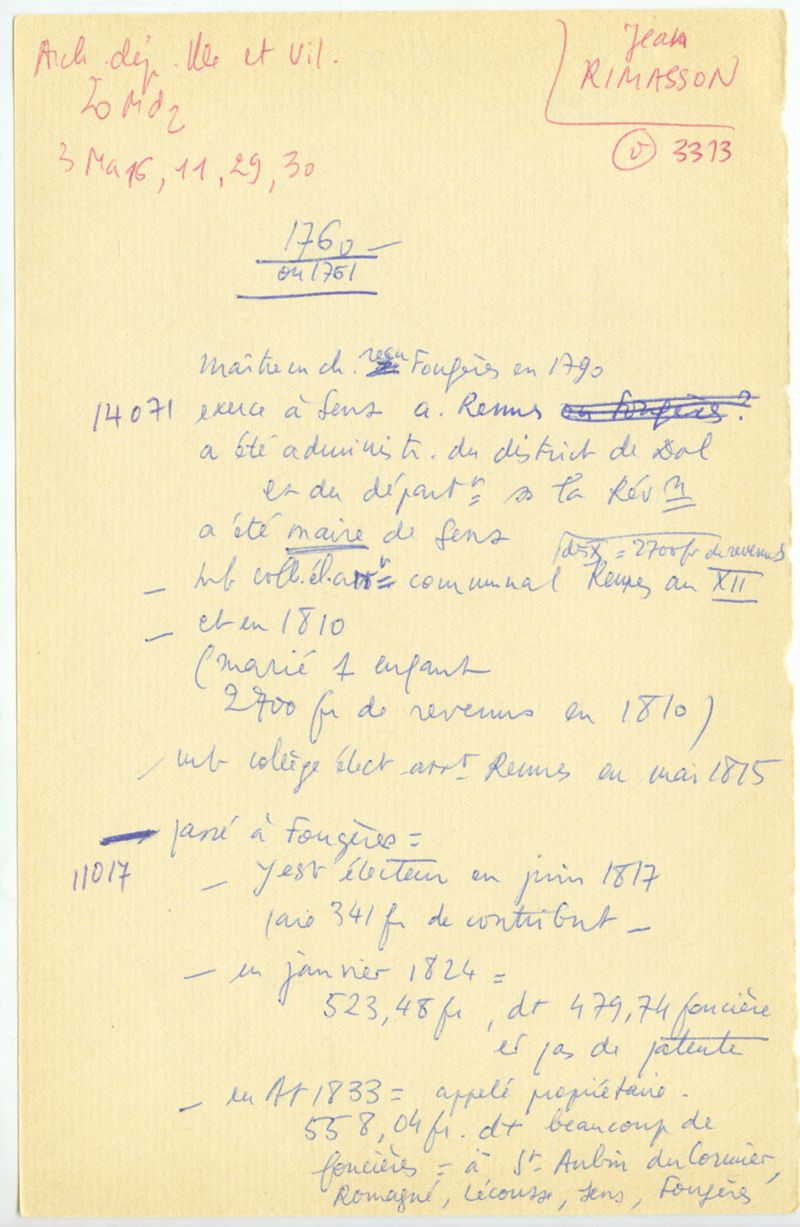 Arch. dép. Ille et Vil.
20 Md2
3 Ma 16, 11, 29, 30
Jean
RIMASSON
(v) 3313
1760 —
ou 1761
maître en ch. reçu Fougères en 1790
14071 exerce à Sens a. Rennes ou Fougères ?
a été administr. du district de Dol
et du départ^t = ss la Rév^n
a été maire de Sens
= 2700 fr de revenus
— mb coll. él. communal Rennes an XII
— et en 1810
(marié 1 enfant
2700 fr de revenus en 1810)
— mb collège élect arr^t Rennes en mai 1815
— passé à Fougères =
11017 — y est électeur en juin 1817
paie 341 fr de contribut —
— en janvier 1824 =
523,48 fr, dt 479,74 foncière
et pas de patente
— en At 1833 = appelé propriétaire.
558,04 fr. dt beaucoup de
foncières = à St. Aubin du Cormier,
Romagné, Lécousse, Sens, Fougères